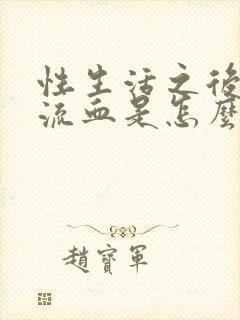 性生活之後
流血是怎麼
趙寶軍